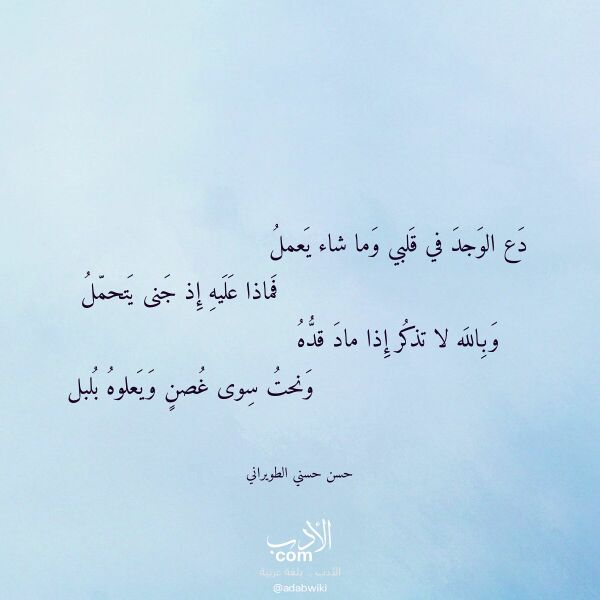 دَع الوَجدَ في قَلبي وَما شاء يَعملُ
فَماذا عَلَيهِ إِذ جَنى يَتحمّلُ
وَبِاللَه لا تذكُر إِذا مادَ قدُّهُ
وَنحتُ سِوى غُصنٍ وَيَعلوهُ بُلبل
حسن حسني الطويراني
الأدب
com
الأدب .. بلغة عربية
@adabwiki